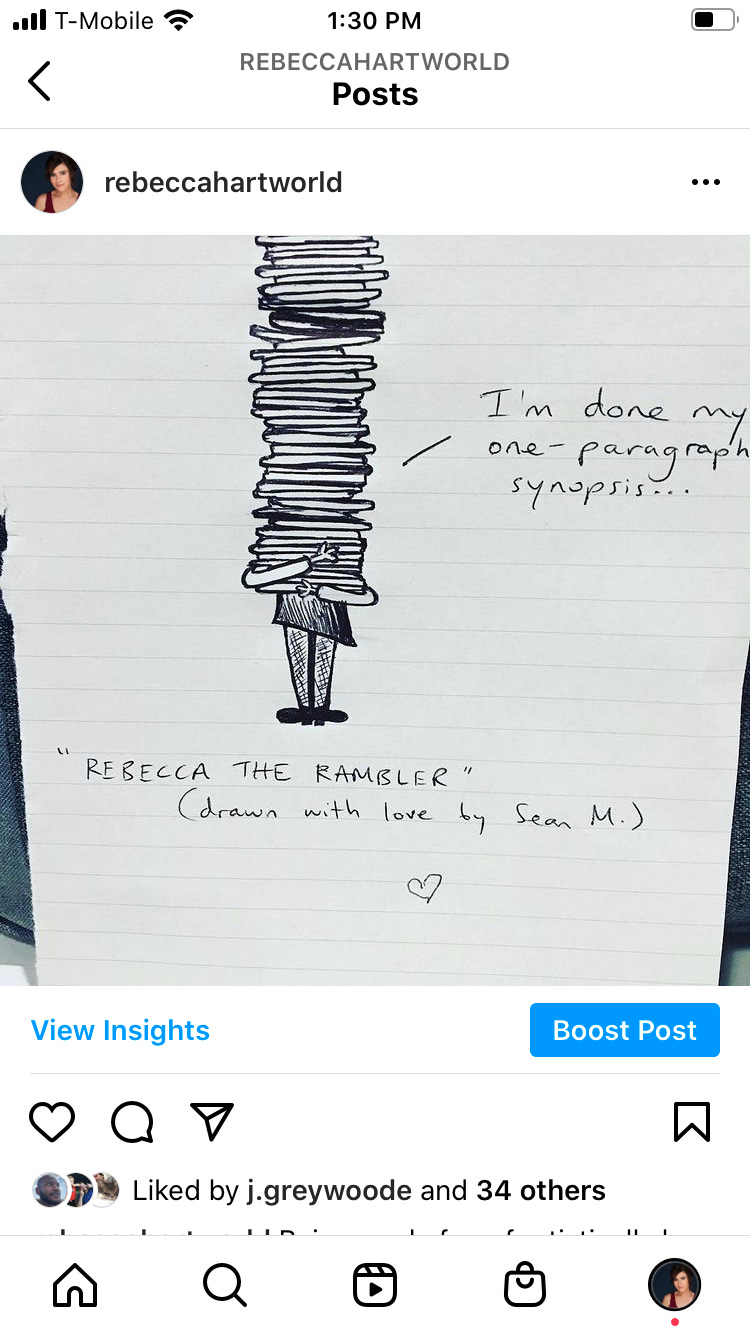 T-Mobile
1:30 PM
REBECCAHARTWORLD
Posts
rebeccahartworld
I'm done my
one-paragraph
synopsis...
"REBECCA THE RAMBLER"
(drawn with love by Sean M.)
View Insights
Boost Post
Liked by j.greywoode and 34 others